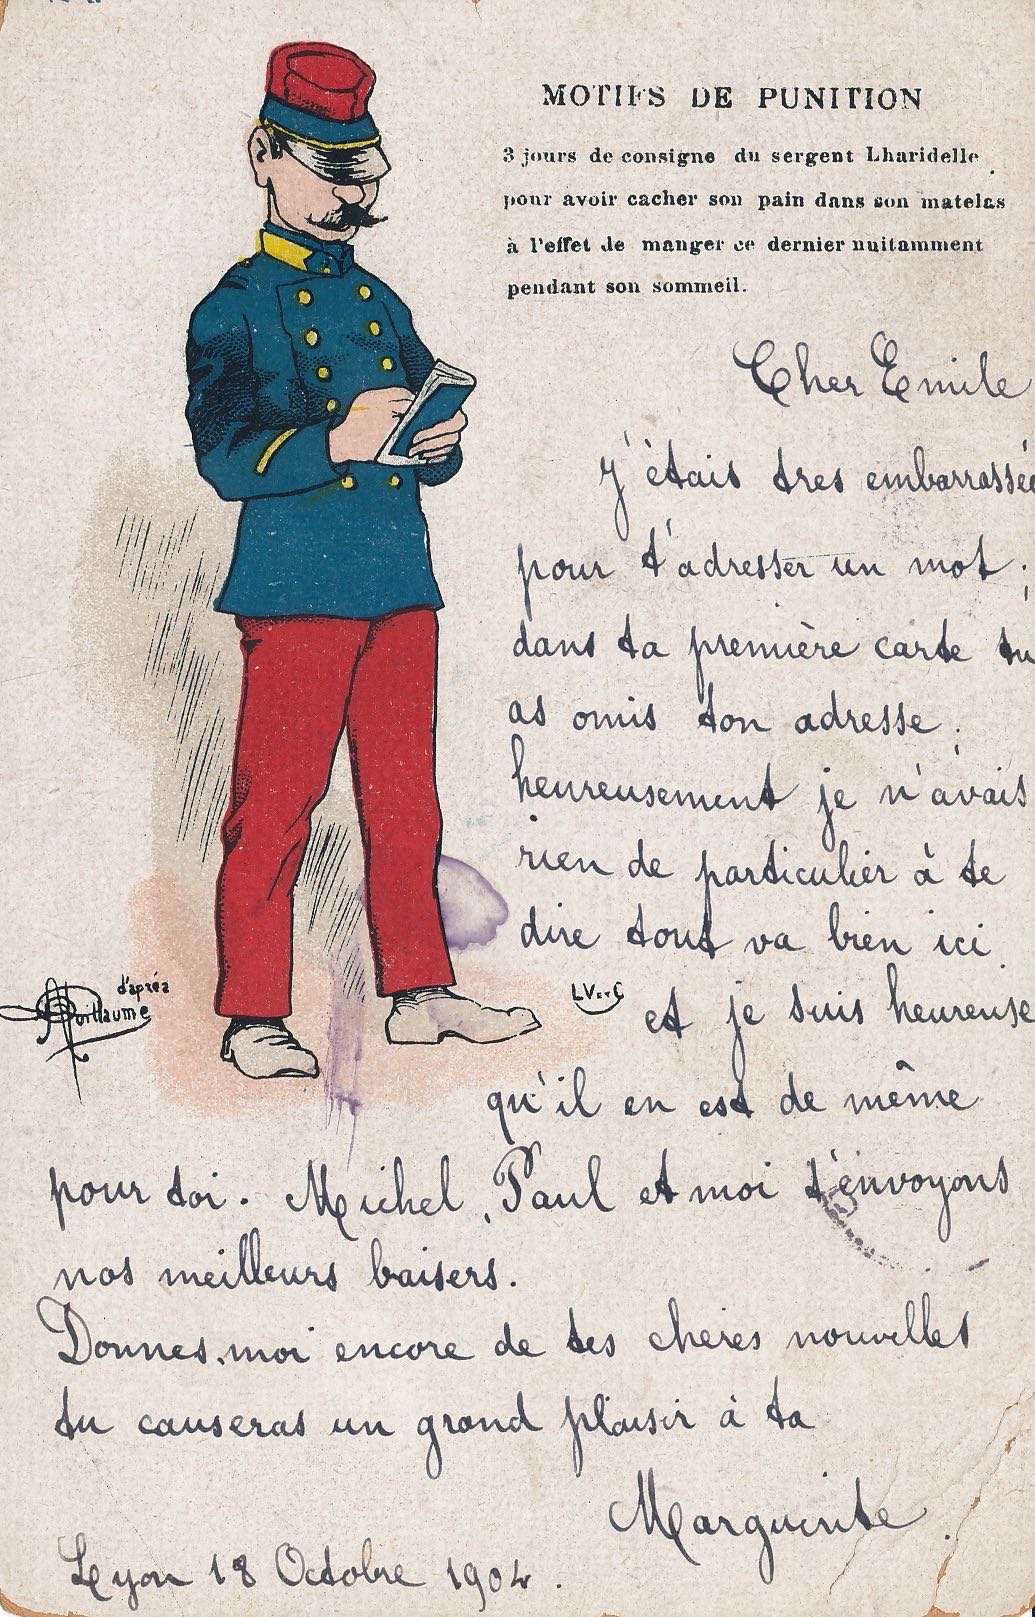 MOTIFS DE PUNITION
3 jours de consigne du sergent Lharidelle
pour avoir cacher son pain dans son matelas
à l'effet de manger ce dernier nuitamment
pendant son sommeil.
Cher Emile
j'étais tres embarrassée
pour t'adresser un mot.
dans ta première carte tu
as omis ton adresse.
heureusement je n'avais
rien de particulier à te
dire tout va bien ici
et je suis heureuse
qu'il en est de même
pour toi. Michel, Paul et moi t'envoyons
nos meilleurs baisers.
Donnes-moi encore de tes cheres nouvelles
tu causeras un grand plaisir à ta
Marguerite.
Lyon 18 Octobre 1904.
d'après
Guillaume
L V et C